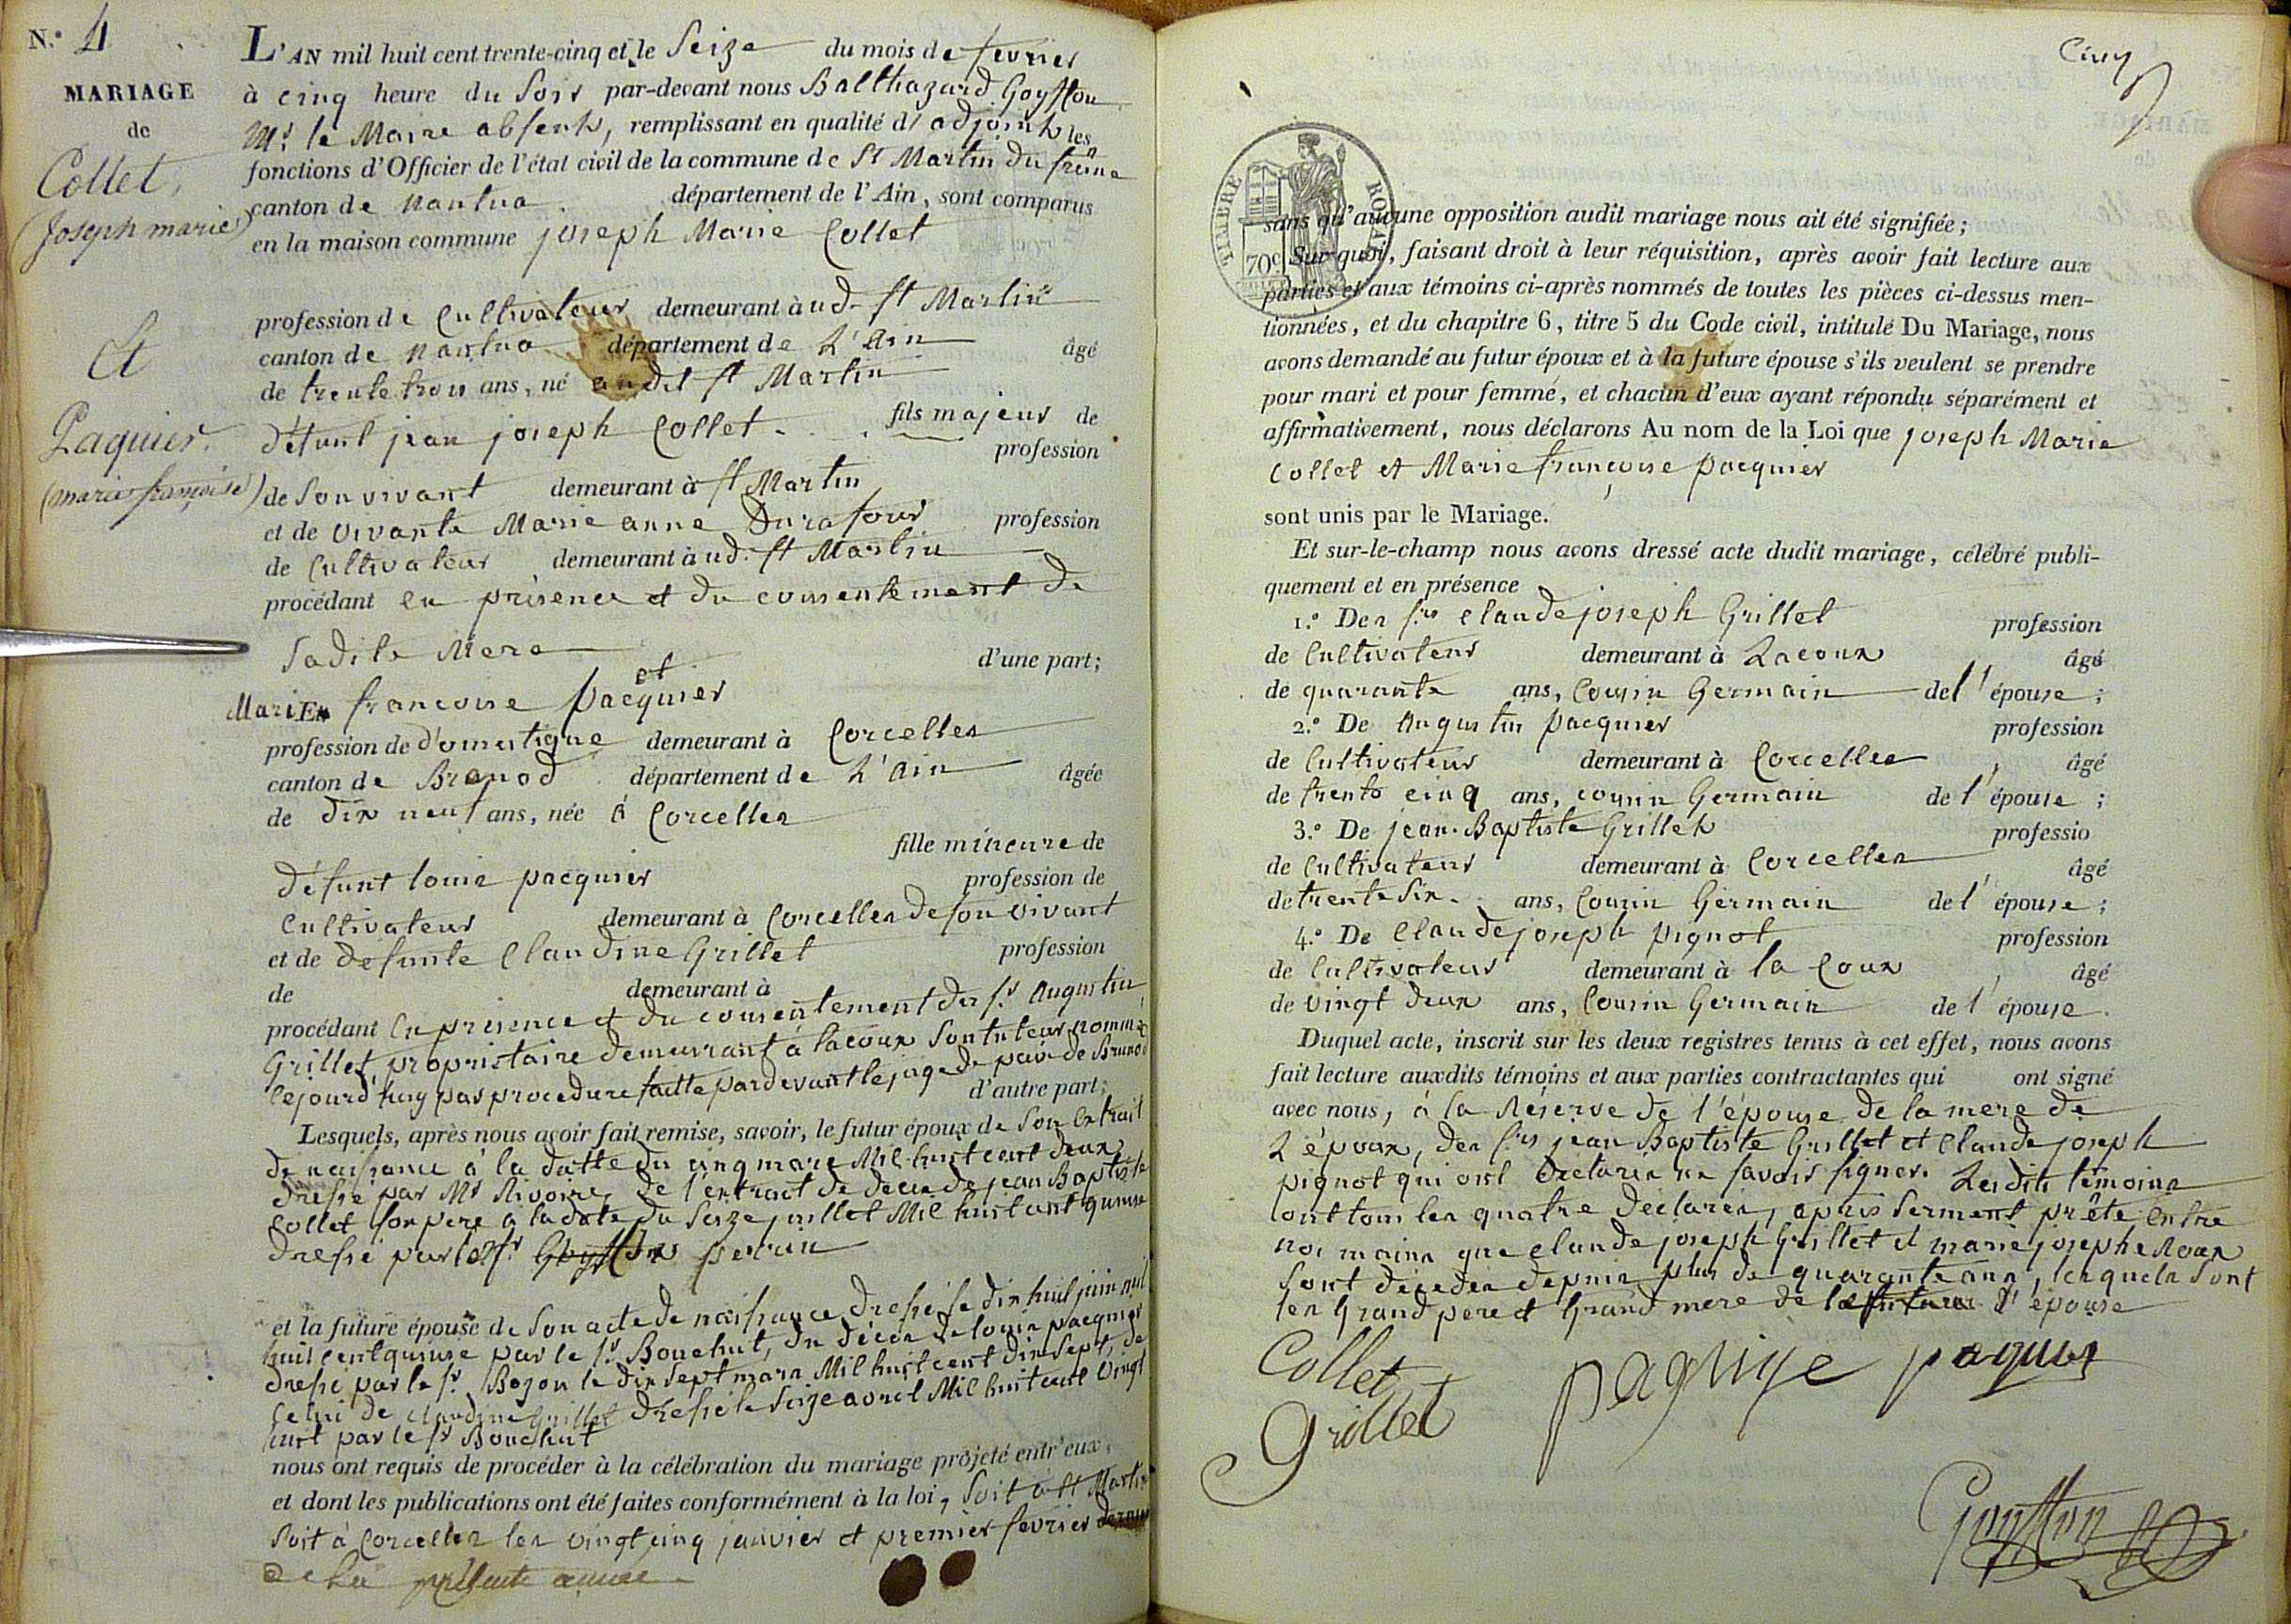 N.º 4
MARIAGE
de
Collet,
(Joseph marie)
Et
Paquier.
(marie françoise)
L'AN mil huit cent trente-cinq et le Seize du mois de fevrier
à cinq heure du Soir par-devant nous Balthazard Goyffon
Mr. le Maire absent, remplissant en qualité d'adjoint les
fonctions d'Officier de l'état civil de la commune de St Martin du frêne
canton de nantua département de l'Ain, sont comparus
en la maison commune joseph Marie Collet
profession de Cultivateur demeurant à ud. st Martin
canton de nantua département de L'Ain âgé
de trente trois ans, né audit st Martin
fils majeur de
défunt jean joseph Collet.
profession
de Son vivant demeurant à st Martin
et de vivante Marie anne Durafour profession
de Cultivateur demeurant à ud. st Martin
procédant en présence et du consentement de
Sadite Mere d'une part;
et
MariE francoise pacquier
profession de d'omestique demeurant à Corcelles
canton de Brenod département de L'Ain âgée
de dix neuf ans, née à Corcelles
fille mineure de
défunt louis pacquier profession de
Cultivateur demeurant à Corcelles de son vivant
et de defunte Claudine Grillet profession
de demeurant à
procédant En présence et du consentement du sr. Augustin
Grillet, propriétaire demeurant à lacoux Son tuteur nommé
Cejourd'huy par procedure faitte pardevant le juge de paix de Brenod
d'autre part;
Lesquels, après nous avoir fait remise, savoir, le futur époux de Son Extrait
de naissance à la datte du cinq mars Mil huit cent deux
dressé par Mr Rivoire, de l'extrait de deces de jean Baptiste
Collet son pere à la date du Seize juillet Mil huit cent quinze
dressé par le sr. Goyffon perrin
et la future épouse de Son acte de naissance dressé le dix huit juin mil
huit cent quinze par le sr. Bouchut, du décès de louis pacquier
dressé par le sr. Bozon le dix Sept mars Mil huit cent dix Sept, de
Celui de claudine Grillet dressé le Seize avril Mil huit cent vingt
huit par le sr Bouchut
nous ont requis de procéder à la célébration du mariage projeté entr'eux,
et dont les publications ont été faites conformément à la loi, Soit à st Martin
Soit à Corcelles les vingt cinq janvier et premier fevrier dernier
de la présente année
Cinq
TIMBRE ROYAL
70c
sans qu'aucune opposition audit mariage nous ait été signifiée;
Sur quoi, faisant droit à leur réquisition, après avoir fait lecture aux
parties et aux témoins ci-après nommés de toutes les pièces ci-dessus men-
tionnées, et du chapitre 6, titre 5 du Code civil, intitulé Du Mariage, nous
avons demandé au futur époux et à la future épouse s'ils veulent se prendre
pour mari et pour femme, et chacun d'eux ayant répondu séparément et
affirmativement, nous déclarons Au nom de la Loi que joseph Marie
Collet et Marie françoise pacquier
sont unis par le Mariage.
Et sur-le-champ nous avons dressé acte dudit mariage, célébré publi-
quement et en présence
1.º Des srs Claude joseph Grillet profession
de Cultivateur demeurant à Lacoux âgé
de quarante ans, Cousin Germain de l'épouse;
2.º De Augustin pacquier profession
de Cultivateur demeurant à Corcelles, âgé
de trente cinq ans, cousin Germain de l'épouse;
3.º De jean Baptiste Grillet professio
de Cultivateur demeurant à Corcelles âgé
de trente Six ans, Cousin Germain de l'épouse;
4.º De Claude joseph pignot profession
de Cultivateur demeurant à la Coux, âgé
de vingt deux ans, Cousin Germain de l'épouse.
Duquel acte, inscrit sur les deux registres tenus à cet effet, nous avons
fait lecture auxdits témoins et aux parties contractantes qui ont signé
avec nous, à la Réserve de l'épouse de la mere de
L'époux, des srs jean Baptiste Grillet et Claude joseph
pignot qui ont declarés ne savoir signer. Lesdits témoins
ont tous les quatre déclarés, apres Serment prêté Entre
nos mains que claude joseph Grillet et marie josephe Roux
Sont décédés depuis plus de quarante ans, lesquels Sont
les Grand pere et Grand mere de la future l'épouse
Collet paquiye paquier
Grillet
Goyffon